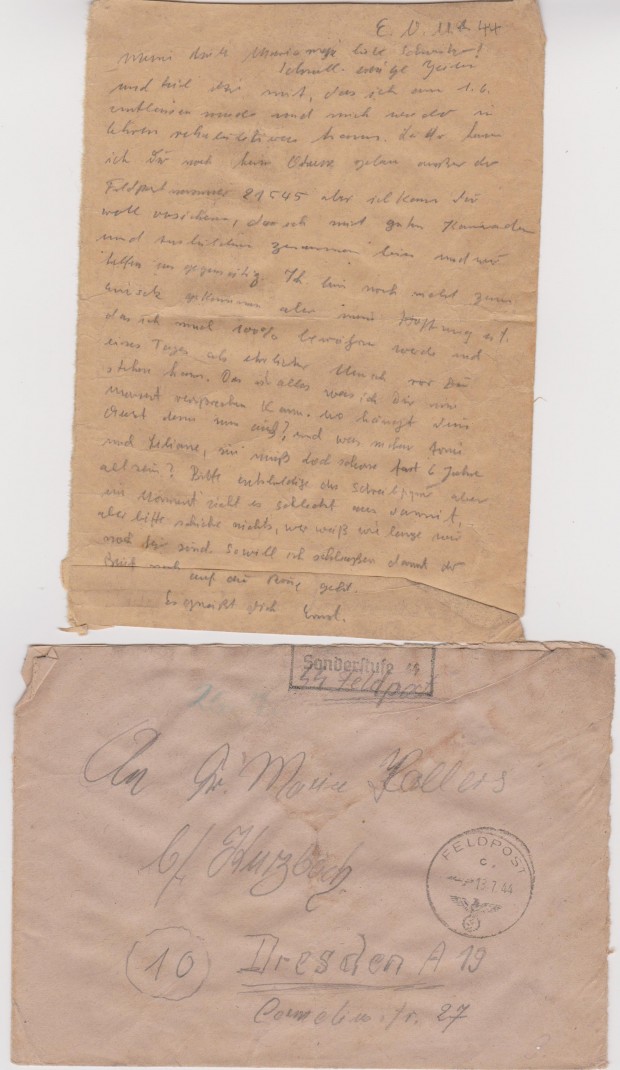 E. O. 11.7.44
Meine liebe Maria, liebe Schwester!
Schnell einige Zeilen
und teil dir mit, das ich am 1.6.
entlassen wurde und mich wieder in
Ehren rehabilitieren kann. Leider kann
ich Dir noch keine Adresse geben außer der
Feldpostnummer 21545 aber ich kann Dir
wohl versichern, das ich mit guten Kameraden
und zusammen bin und wir
helfen uns gegenseitig. Ich bin noch nicht zum
Einsatz gekommen aber meine Hoffnung ist,
das ich mich 100% bewähren werde und
eines Tages als ehrlicher Mensch vor Dir
stehen kann. Das ist alles was ich Dir im
Moment versprechen kann. wo hängt Dein
denn nun und was machen
und Liliane, sie muß doch schon fast 6 Jahre
alt sein? Bitte entschuldige das Schreibpapier aber
im Moment sieht es schlecht aus damit,
aber bitte schicke nichts, wer weiß wie lange wir
noch hier sind. So will ich schließen damit der
Brief noch auf die Reise geht.
Es grüßt Dich Ernst.
Sonderstufe
SS Feldpost
An Fr. Maria Hollers
b/ Kurzbach
FELDPOST
c
13.7.44
10 Dresden A 19
str. 27